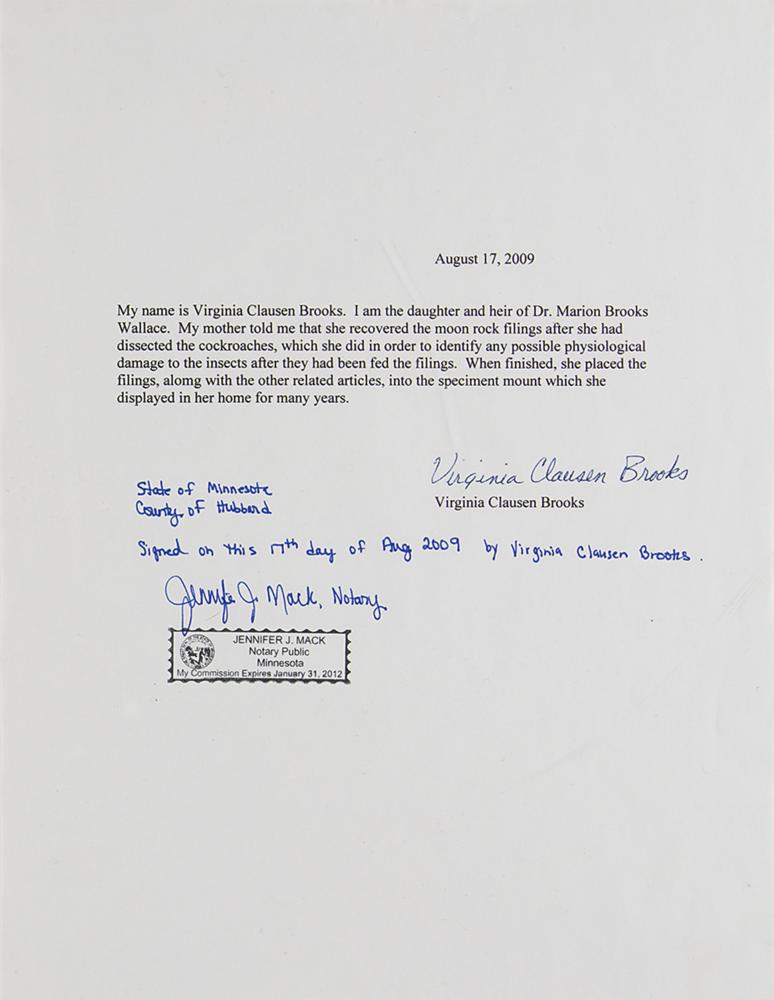 August 17, 2009
My name is Virginia Clausen Brooks. I am the daughter and heir of Dr. Marion Brooks
Wallace. My mother told me that she recovered the moon rock filings after she had
dissected the cockroaches, which she did in order to identify any possible physiological
damage to the insects after they had been fed the filings. When finished, she placed the
filings, alomg with the other related articles, into the speciment mount which she
displayed in her home for many years.
Virginia Clausen Brooks
Virginia Clausen Brooks
State of Minnesota
County of Hubbard
Signed on this 17th day of Aug 2009 by Virginia Clausen Brooks.
Jennifer J. Mack, Notary
JENNIFER J. MACK
Notary Public
Minnesota
My Commission Expires January 31, 2012